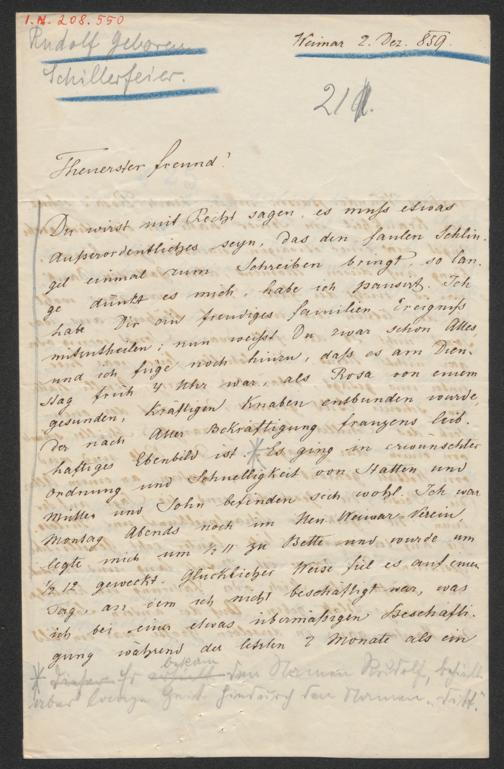 I.N. 208.550
Rudolf geboren
Schillerfeier.
Weimar 2. Dez. 859.
21
Theuerster Freund!
Du wirst mit Recht sagen, es muß etwas
Außerordentliches seyn, das den faulen Schlin-
gel einmal zum Schreiben bringt, so lan-
ge dünkt es mich, habe ich pausirt. Ich
habe Dir ein freudiges Familien Ereigniß
mitzutheilen; nun weißt Du zwar schon Alles
und ich füge noch hinzu, daß es am Dien-
stag früh 4 Uhr war, als Rosa von einem
gesunden, kräftigen Knaben entbunden wurde,
der nach Aller Bekräftigung Franzens leib-
haftiges Ebenbild ist. * Es ging in erwünschter
Ordnung und Schnelligkeit von Statten und
Mutter und Sohn befinden sich wohl. Ich war
Montag Abends noch im Neu Weimar Verein
legte mich um ½ 11 zu Bette und wurde um
½ 12 geweckt. Glücklicher Weise fiel es auf einen
Tag, an dem ich nicht beschäftigt war, was
ich bei einer etwas übermäßigen Beschäfti-
gung während der letzten 2 Monate als ein
bekam
* Dieser Er erhielt den Namen Rudolf, behielt
aber lange Zeit hindurch den Namen